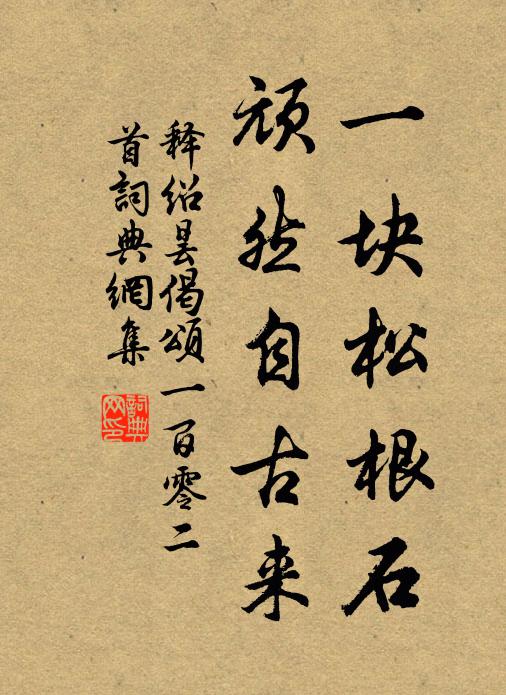 一块松根石
顽然自古来
释绍昙偈頌一百零二
首詞典網集
詞典
网印